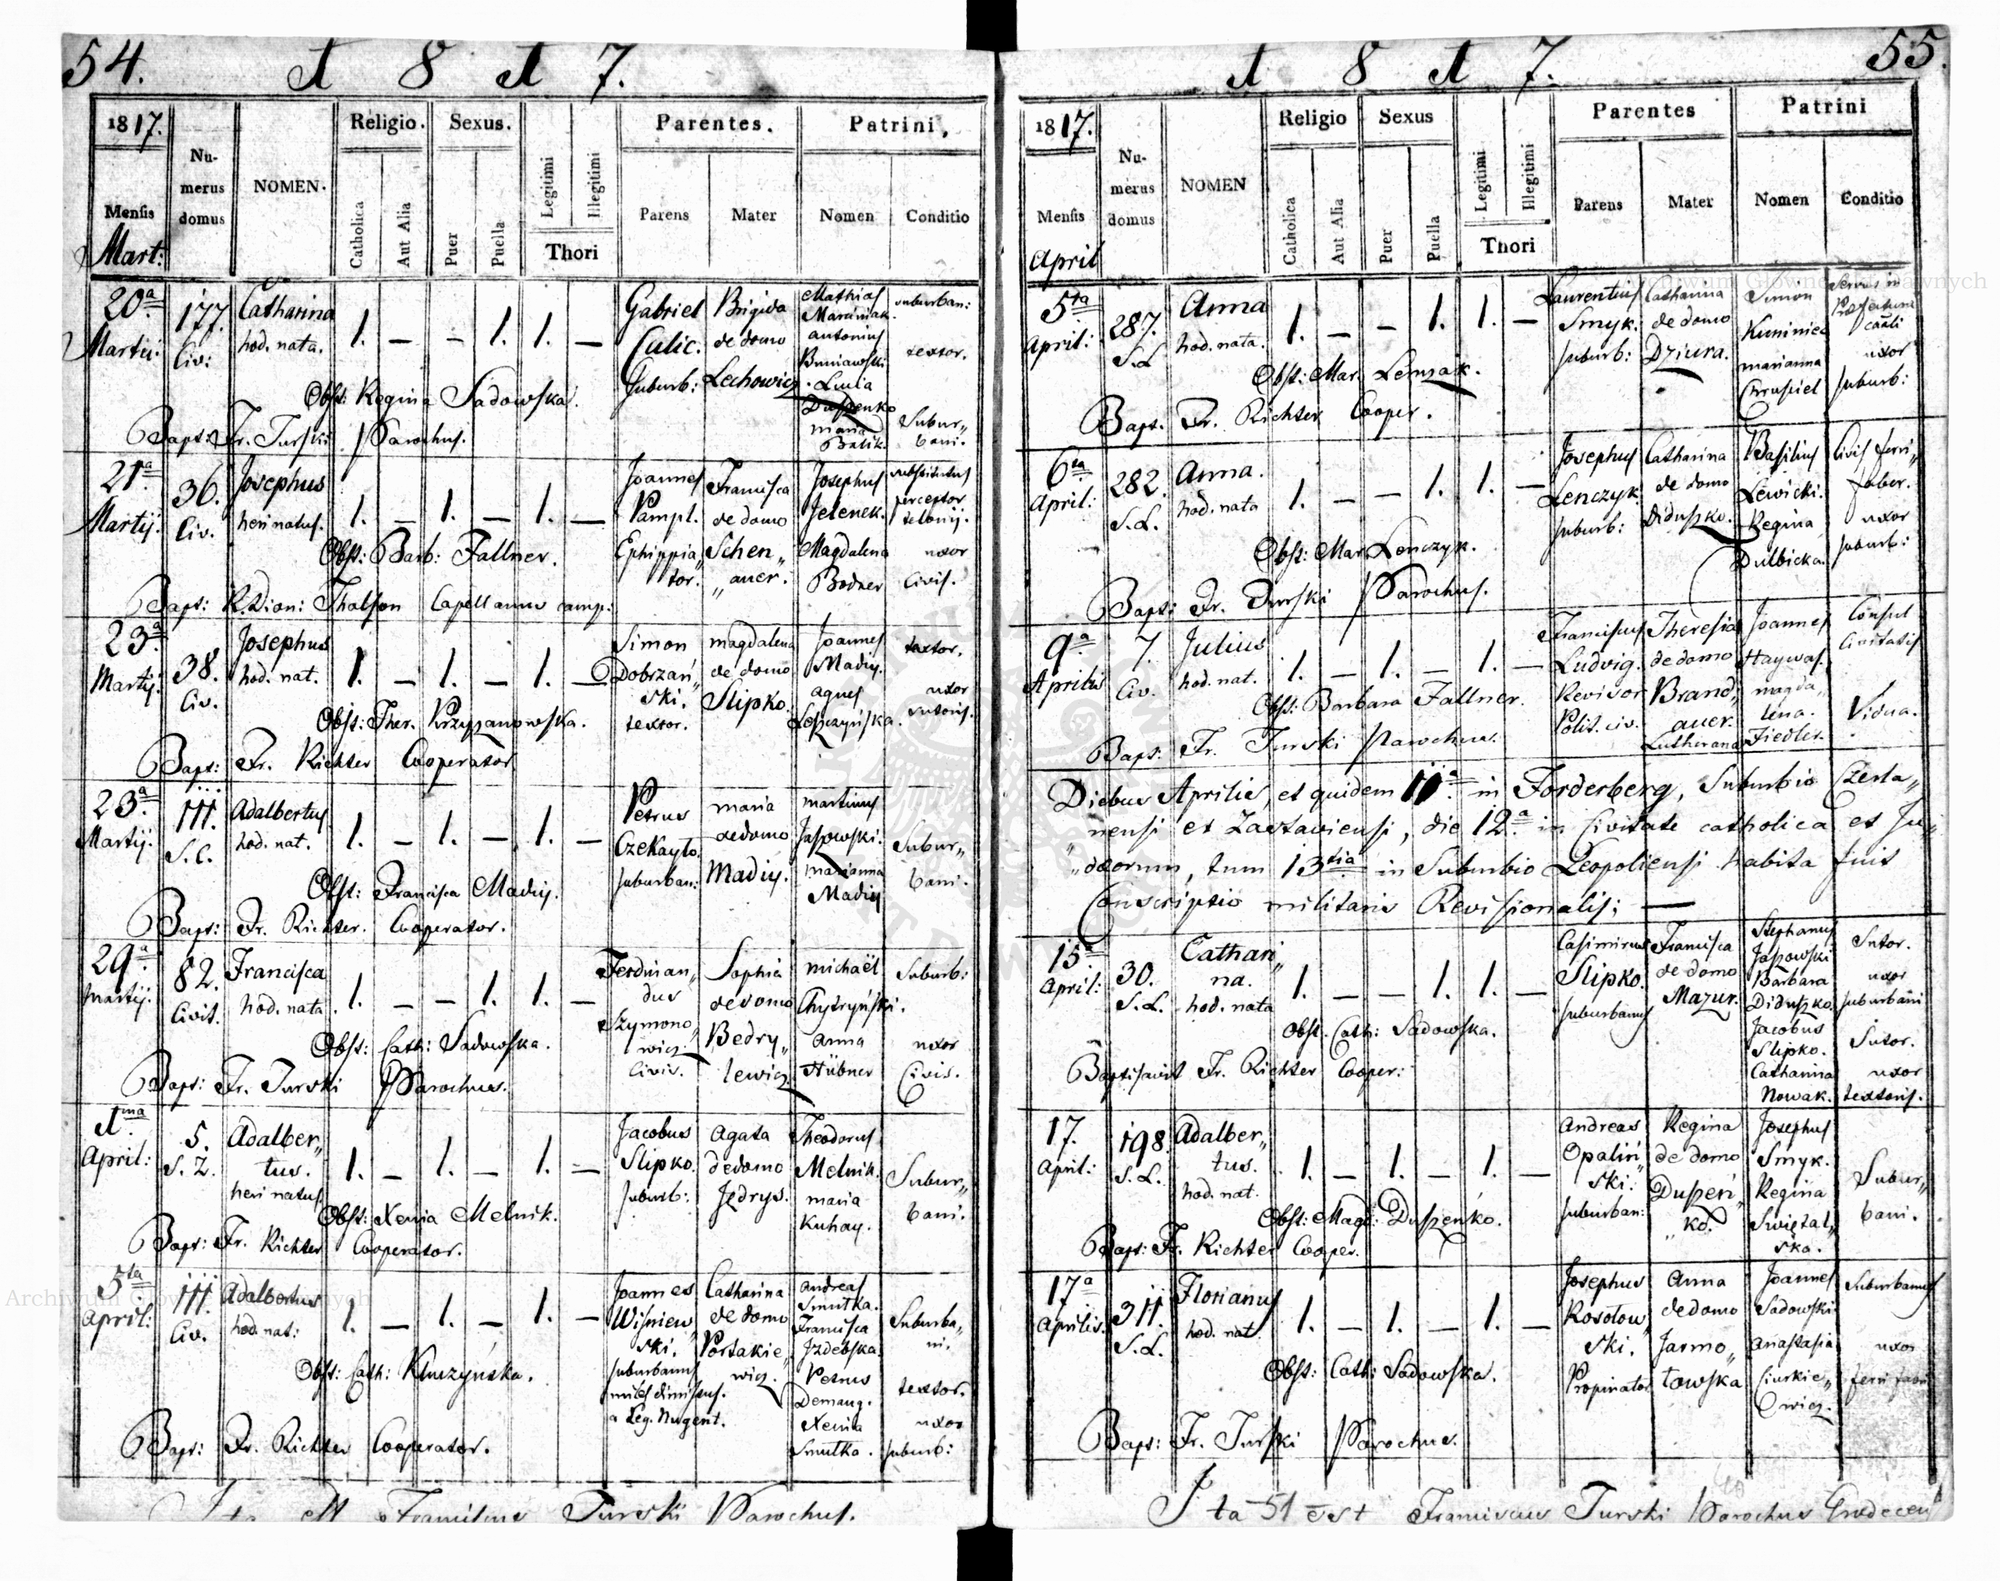 54.
1 8 1 7.
1817.
Mensis
Mart:
Numerus domus
NOMEN.
Religio.
Catholica
Aut Alia
Sexus.
Puer
Puella
Legitimi
Illegitimi
Thori
Parentes.
Parens
Mater
Patrini,
Nomen
Conditio
20a Martii:
177. Civ:
Catharina hod. nata.
1. — — 1. 1. —
Gabriel Culic. suburb:
Brigida de domo Lechowicz
Mathias Marciniak. Antonius Buniawski
Maria Balik.
suburban:
textor.
Suburbani.
Obst: Regina Sadowska.
Bapt: Fr. Turski Parochus.
21a Martij:
36. Civ.
Josephus heri natus.
1. — 1. — 1. —
Joannes Pampl. Ephippiator.
Francisca de domo Schenauer.
Josephus Jelenek. Magdalena Bodner
substitutus perceptor telonij.
uxor Civis.
Obst: Barb: Fallner.
Bapt: R. Dion: Thalson Capellanus camp:
23a Martij:
38. Civ.
Josephus hod. nat.
1. — 1. — 1. —
Simon Dobrzański. textor.
Magdalena de domo Slipko.
Joannes Madij. Agnes Leszczyńska.
textor.
uxor sutoris.
Obst: Ther. Krzyzanowska.
Bapt: Fr. Richter Cooperator
23a Martij:
111. S. C.
Adalbertus hod. nat.
1. — 1. — 1. —
Petrus Czekayło. suburban:
Maria de domo Madij.
Martinus Jasowski. Marianna Madij
Suburbani.
Obst: Francisca Madij.
Bapt: Fr. Richter. Cooperator.
29a Martij:
82. Civit.
Francisca hod. nata
1. — — 1. 1. —
Ferdinandus Szymonowicz Civis.
Sophia de domo Bedrylewicz
Michaël Chytryński. Anna Hübner
Suburb:
uxor Civis.
Obst: Cath: Sadowska.
Bapt: Fr. Turski Parochus.
1ma April:
5. S. Z.
Adalbertus. heri natus
1. — 1. — 1. —
Jacobus Slipko. suburb:
Agata de domo Jedrys.
Theodorus Melnik. Maria Kuhay.
Suburbani.
Obst: Xenia Melnik.
Bapt: Fr. Richter Cooperator.
5ta April:
111. Civ.
Adalbertus hod. nat:
1. — 1. — 1. —
Joannes Wiśniewski. suburbanus miles dimissus. a Leg. Nugent.
Catharina de domo Portakiewicz.
Andreas Smutka. Francisca Jzdebska. Petrus Demang. Xenia Smutko.
Suburbani.
textor.
uxor suburb:
Obst: Cath: Kluczyńska.
Bapt: Fr. Richter Cooperator.
Ita est Franciscus Turski Parochus.
55.
1 8 1 7.
1817.
Mensis
April
Numerus domus
NOMEN
Religio
Catholica
Aut Alia
Sexus
Puer
Puella
Legitimi
Illegitimi
Thori
Parentes
Parens
Mater
Patrini
Nomen
Conditio
5ta April:
287. S.L.
Anna hod. nata.
1. — — 1. 1. —
Laurentius Smyk. suburb:
Catharina de domo Dziura.
Simon Kuminiec Marianna Chruspiel
Servus in Praefectura camli
uxor suburb:
Obst: Mar. Lenzak.
Bapt. Fr. Richter Cooper.
6ta April:
282. S.L.
Anna. hod. nata
1. — — 1. 1. —
Josephus Lenczyk suburb:
Catharina de domo Diduszko.
Basilius Lewicki. Regina Dulbicka.
Civis ferrifaber.
uxor suburb:
Obst: Mar. Lenczyk.
Bapt: Fr. Turski Parochus.
9a Aprilis
7. Civ.
Julius hod. nat.
1. — 1. — 1. —
Franciscus Ludvig. Revisor Polit. civ.
Theresia de domo Brandauer. Lutherana
Joannes Haywas. Magdalena. Fiedler.
Consul Civitatis
Vidua.
Obst: Barbara Fallner.
Bapt: Fr. Turski Parochus.
Diebus Aprilis, et quidem 11a in Forderberg, Suburbio Czerla„
nensi et Zastawiensi, die 12a in Civitate catholica et Ju„
„daeorum, tum 13tia in Suburbio Leopoliensi habita fuit
Conscriptio militaris Revisionalis; —
15a April:
30. S.L.
Catharina. hod. nata
1. — — 1. 1. —
Casimirus Slipko. suburbanus
Francisca de domo Mazur.
Stephanus Jasowski Barbara Diduszko. Jacobus Slipko. Catharina Nowak.
Sutor.
uxor suburbani
Sutor.
uxor textoris.
Obst. Cath: Sadowska.
Baptisavit Fr. Richter Cooper:
17. April:
198. S.L.
Adalbertus. hod. nat.
1. — 1. — 1. —
Andreas Opaliński. suburban:
Regina de domo Duszeńko.
Josephus Smyk. Regina Swiętalska.
Suburbani.
Obst: Magd: Duszeńko.
Bapt: Fr. Richter Cooper.
17a Aprilis.
311. S.L.
Florianus hod. nat.
1. — 1. — 1. —
Josephus Kosołowski. Propinator
Anna de domo Jarmołowska
Joannes Sadowski Anastasia Ciurkiewicz.
Suburbanus
uxor ferri fabri
Obst: Cath: Sadowska.
Bapt: Fr. Turski Parochus.
Ita est Franciscus Turski Parochus Grodecen